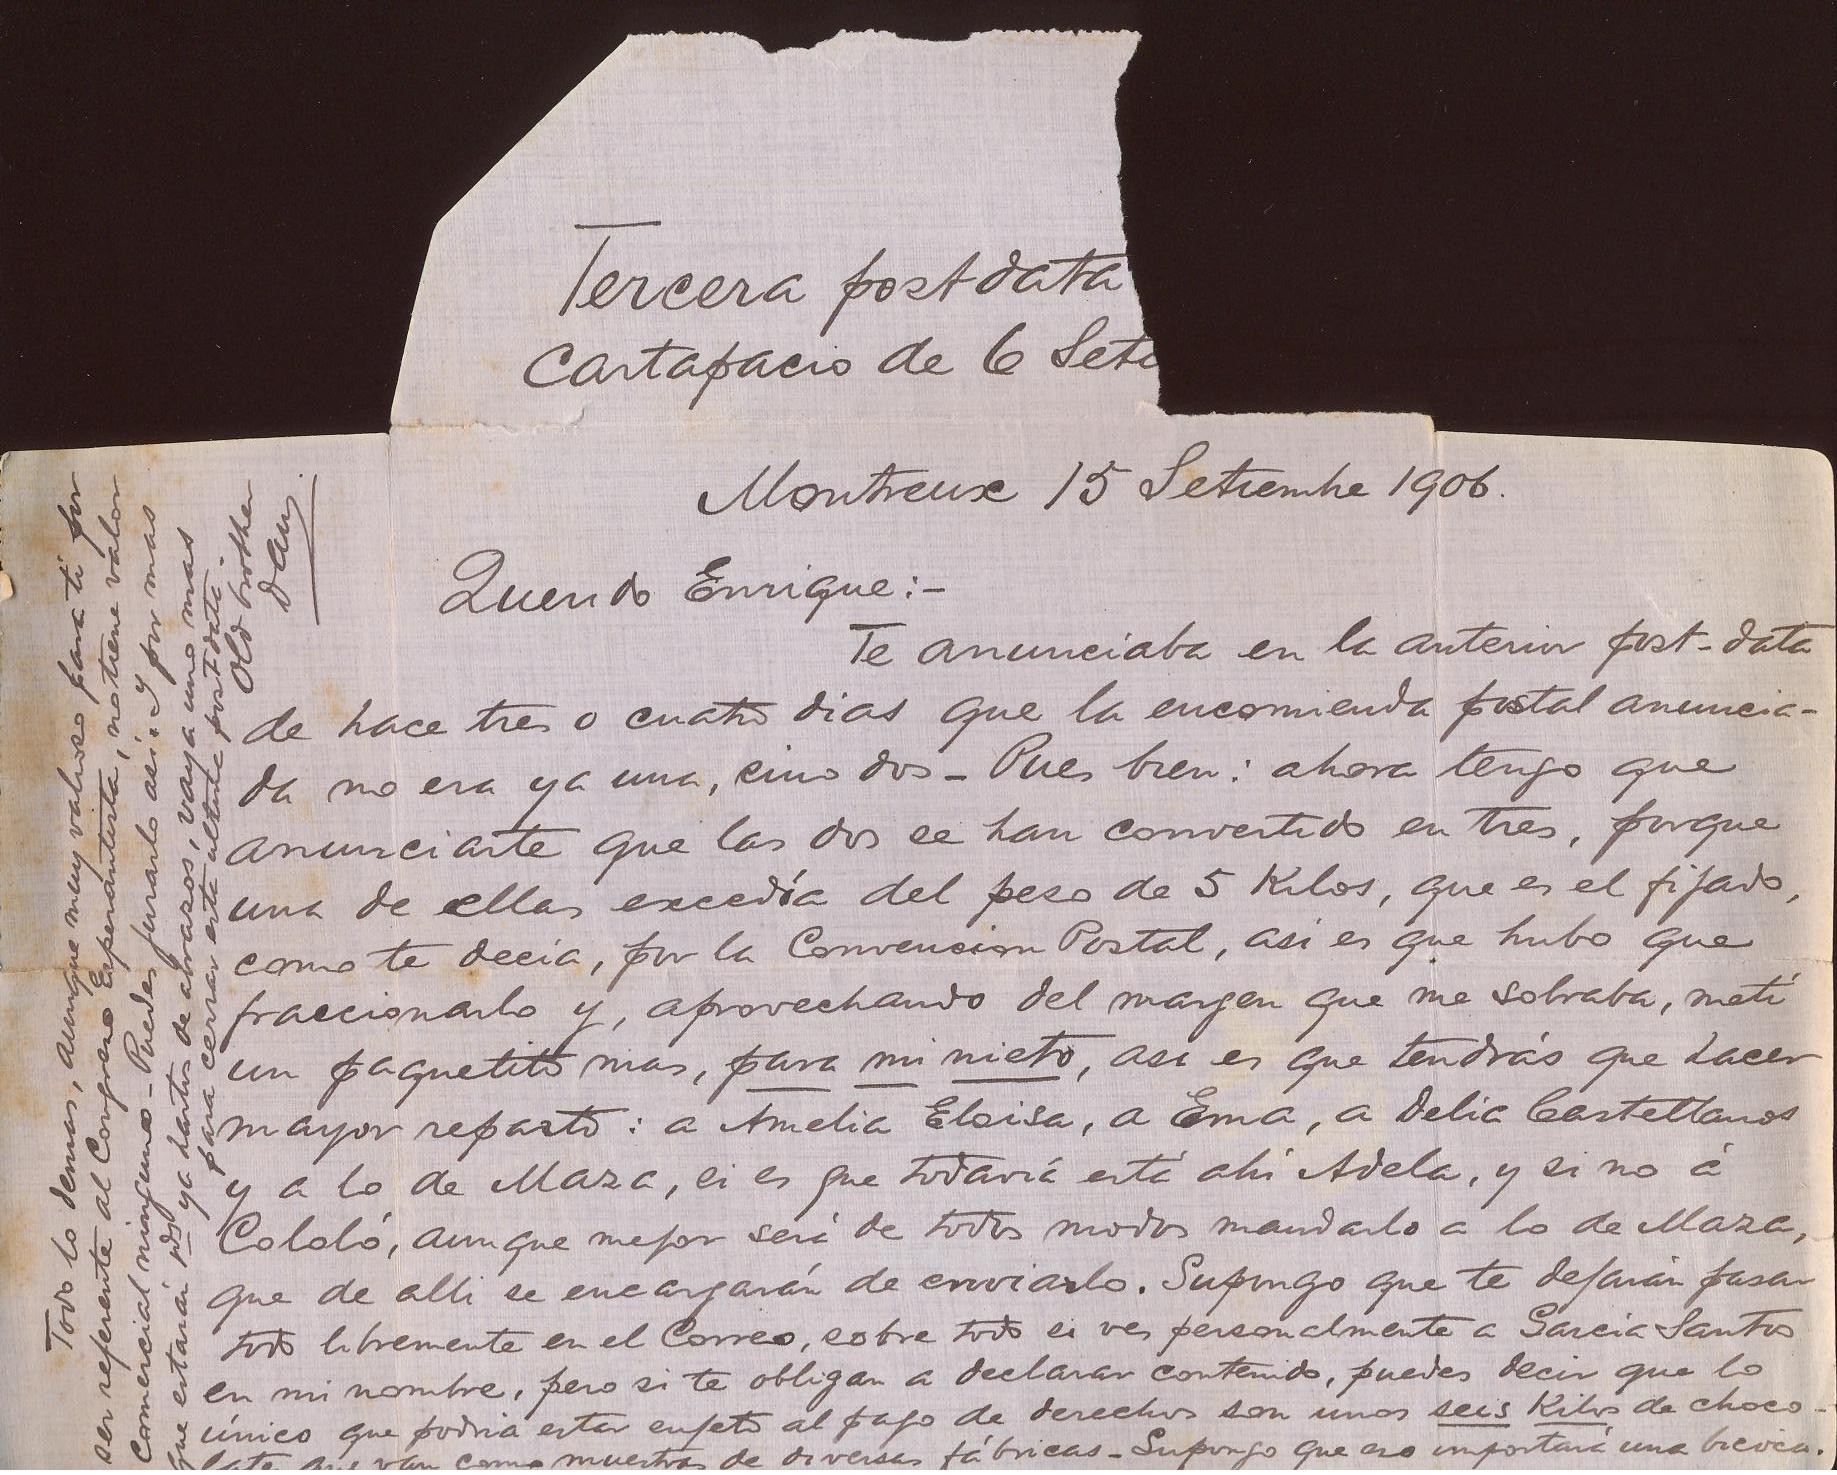 Tercera post data
Cartapacio de 6 Seti
Montreux 15 Setiembre 1906.
Querido Enrique:-
Te anunciaba en la anterior post-data
de hace tres o cuatro dias que la encomienda postal anuncia-
da no era ya una, sino dos - Pues bien: ahora tengo que
anunciarte que las dos se han convertido en tres, porque
una de ellas excedía del peso de 5 Kilos, que es el fijado,
como te decia, por la Convencion Postal, asi es que hubo que
fraccionarlo y, aprovechando del margen que me sobraba, metí
un paquetito mas, para mi nieto, asi es que tendrás que hacer
mayor reparto: a Amelia Eloisa, a Ema, a Delia Castellanos
y a lo de Maza, si es que todavía está ahí Adela, y si no á
Cololó, aunque mejor será de todos modos mandarlo a lo de Maza,
que de alli se encargarán de enviarlo. Supongo que te dejarán pasar
todo libremente en el Correo, sobre todo si ves personalmente a Garcia Santos
en mi nombre, pero si te obligan a declarar contenido, puedes decir que lo
único que podria estar sujeto al pago de derechos son unos seis Kilos de choco-
late que van como muestras de diversas fábricas - Supongo que eso importará una bicoca.
Todo lo demas, aunque muy valioso para ti por
ser referente al Congreso Esperantista, no tiene valor
Comercial ninguno - Puedes jurarlo asi. - Y por mas
que estarán Vds ya hartos de abrazos, vaya uno mas
para cerrar esta última post data.
Old brother
Dan